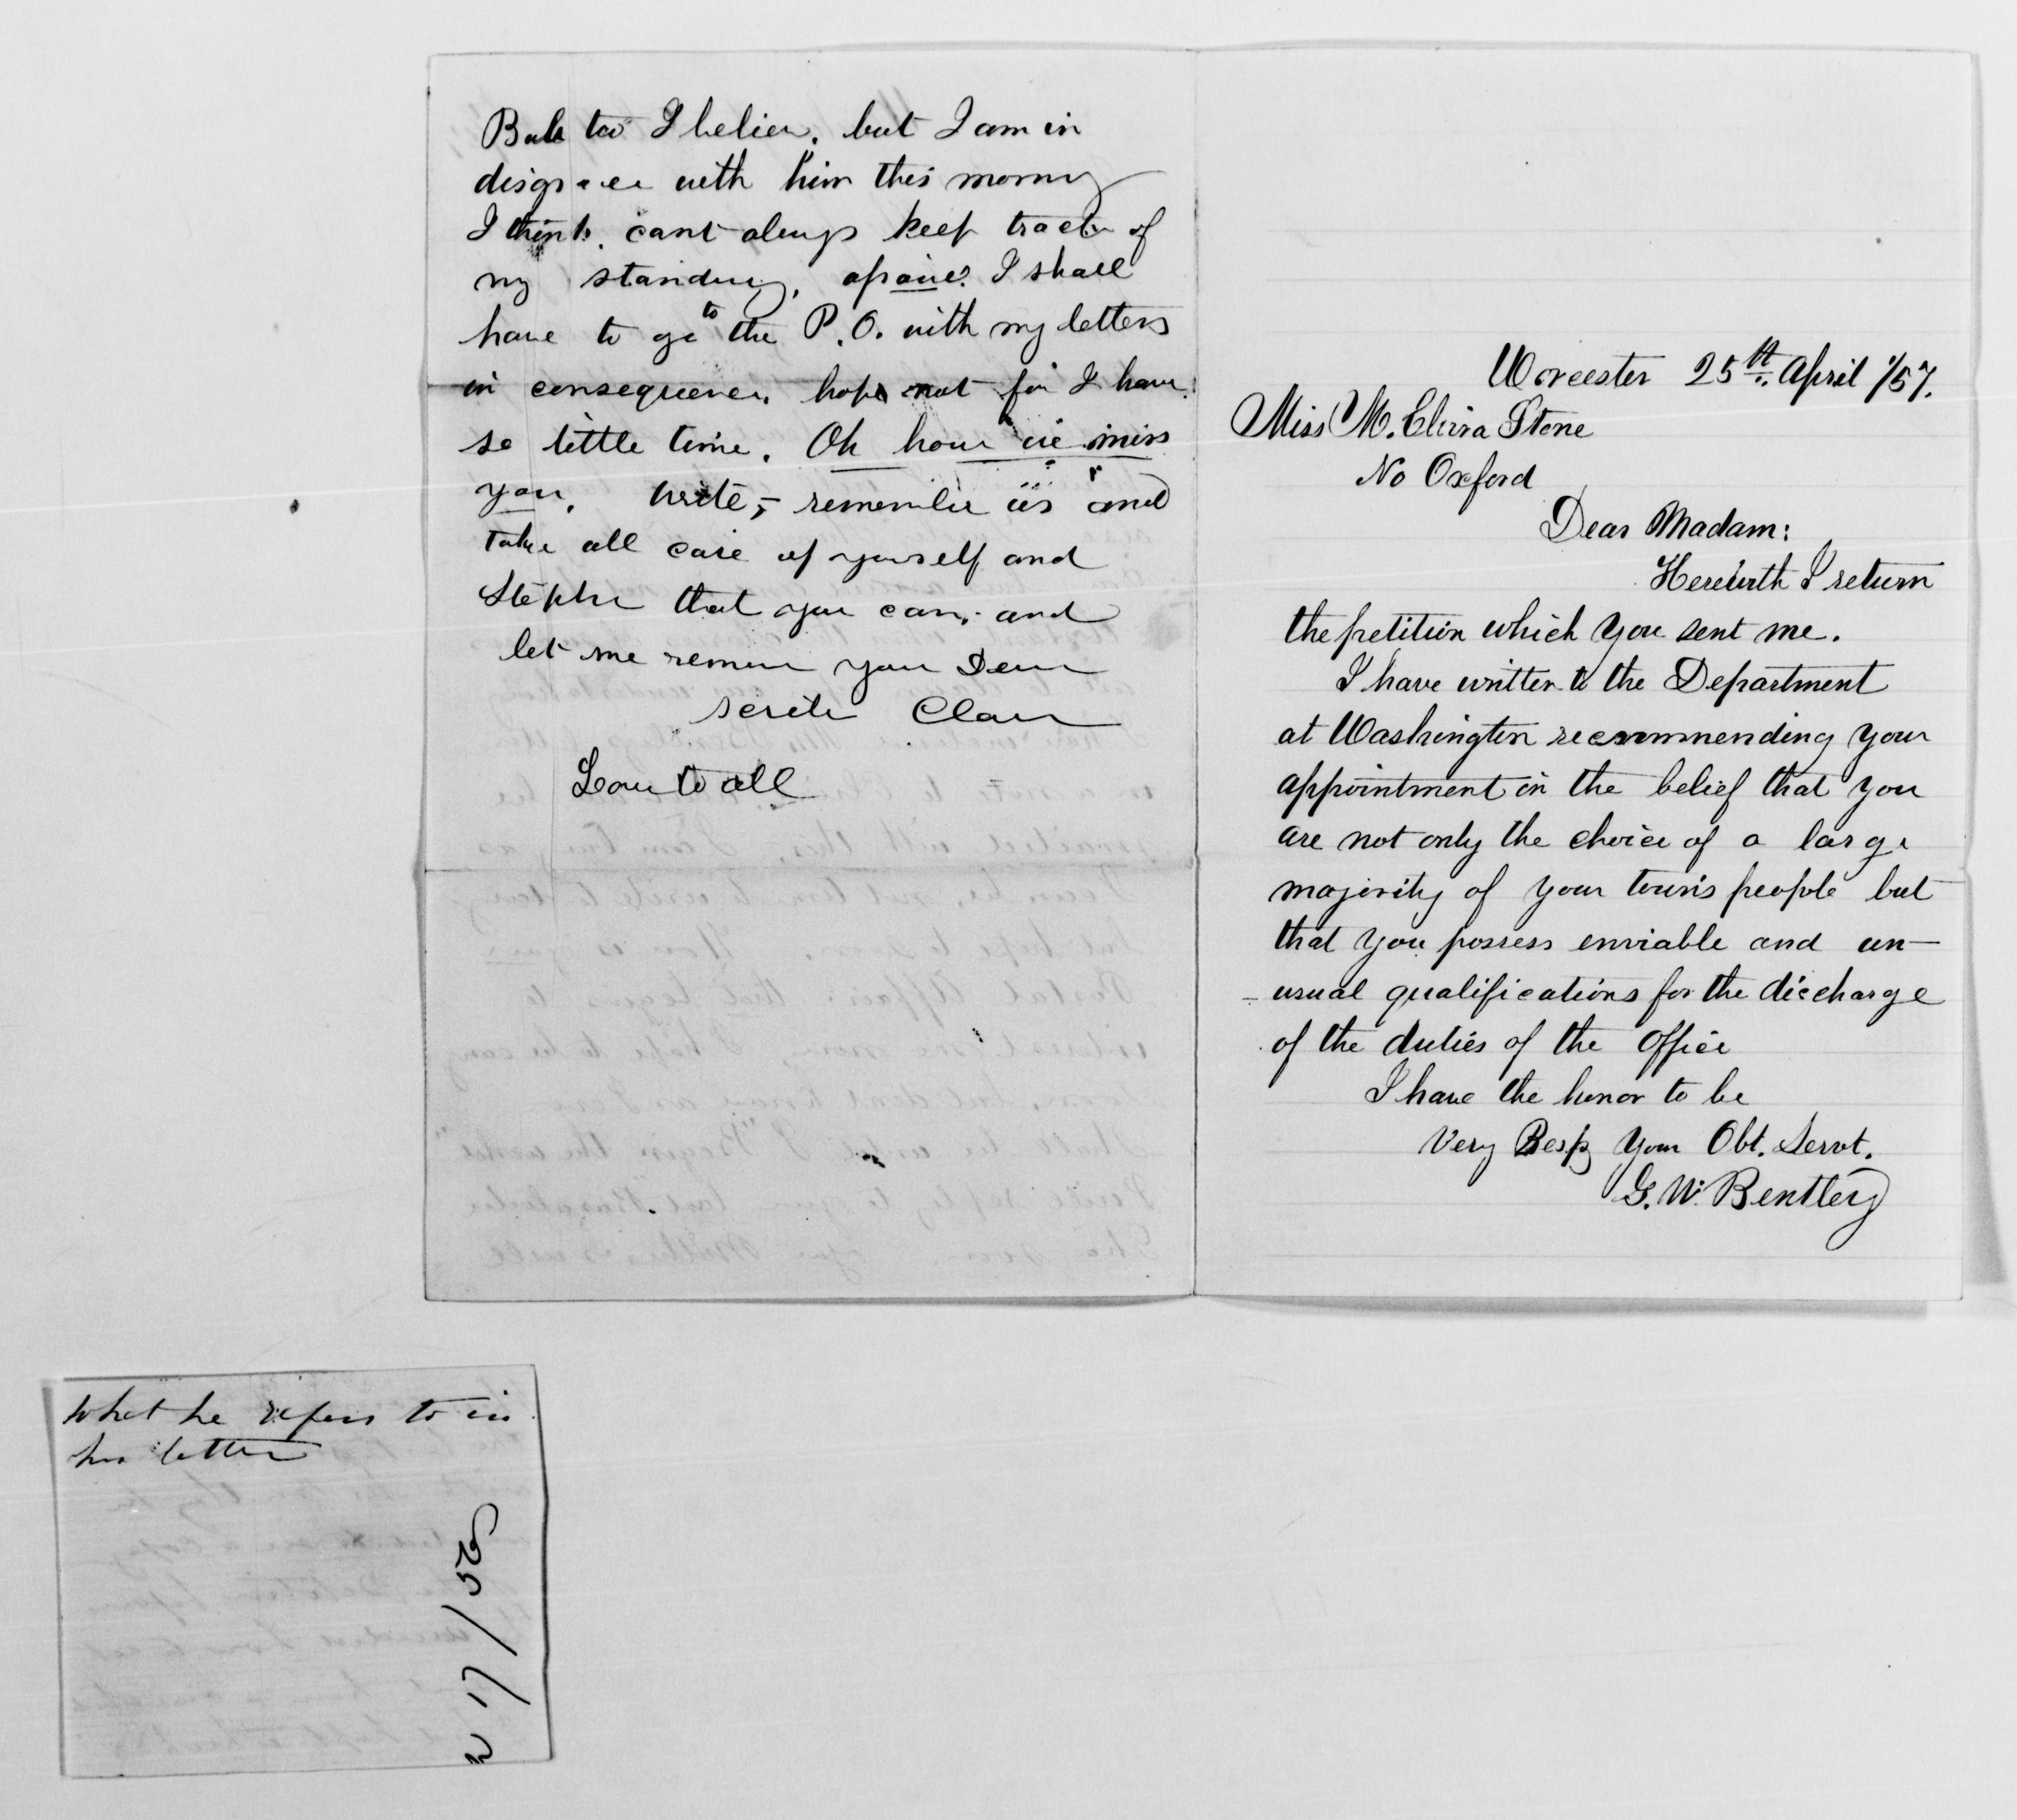 Bub too I believe, but I am in
disgrace with him this morning
I think. cant always keep track of
my standing, I shall
have to go to the P.O. with my letters
in consequence, hope not for I have
so little time. Oh how we miss
you. Write, – remember us and
take all care of yourself and
Stephe that you can, and
let me remain your Dear
Clara
Love to all
Worcester 25th April /57.
Miss M. Elvira Stone
No Oxford
Dear Madam:
Herewith I return
the petition which you sent me.
I have written to the Department
at Washington recommending your
appointment in the belief that you
are not only the choice of a large
majority of your towns people but
that you possess enviable and un-
-usual qualifications for the discharge
of the duties of the Office
I have the honor to be
Very Respy Your Obt. Servt.
G. W. Bentley
What he refers to in
his letter